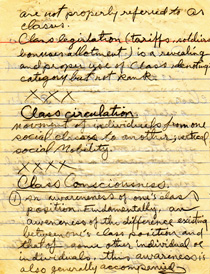 are not properly referred to as
classes.
Class legislation (tariffs, soldiers
bonuses allotment) is a revealing
and proper use of class denoting
category but not rank.
XXX
Class circulation
movement of individuals from one
social class to another; vertical
social Mobility
XXXX
Class Consciousness.
① An awareness of one's class
position. Fundamentally, an
awareness of the difference existing
between one's class position and
that of some other individual or
individuals. This awareness is
also generally accompanied